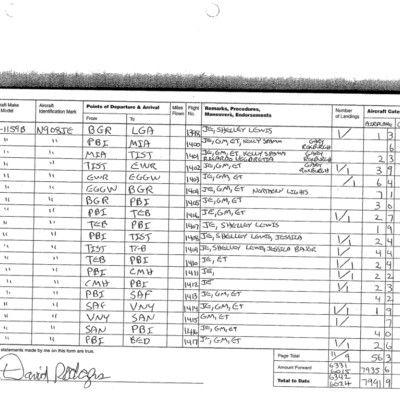 Aircraft Make Model | Aircraft Identification Mark | Points of Departure & Arrival From To | Miles Flown | Flight No | Remarks, Procedures, Maneuvers, Endorsements | Number of Landings | Aircraft Cate
-1159B N908JE BGR LGA 1398 JE, SHELLEY LEWIS 1/ 1 3
" " PBI MIA 1400 JE, GM, ET, KELLY SPAMM GARY ROXBURGH 6
" " MIA TIST 1401 JE, GM, ET, KELLY SPAMM 2 3
" " TIST EWR 1402 JE, GM, ET GARY ROXBURGH 1/ 3 9
" " EWR EGGW 1403 JE, GM, ET /1 6 4
" " EGGW BGR 1404 JE, GM, ET NORTHERN LIGHTS 7 1
" " BGR PBI 1405 JE, GM, ET 3 0
" " PBI TEB 1406 JE, GM, ET 1/ 2 7
" " TEB PBI 1407 JE, SHELLEY LEWIS 1 9
" " PBI TIST 1408 JE, SHELLEY LEWIS, JESSICA 1/1 2 4
" " TIST TEB 1409 JE, SHELLEY LEWIS, JESSICA BAKER 1/1 4 4
" " TEB PBI 1410 JE, ET 1/1 2 4
" " PBI CMH 1411 JE, 1/1 2 2
" " CMH PBI 1412 JE 1/1 2 3
" " PBI SAF 1413 JE, GM, ET 4 2
" " SAF VNY 1414 JE, GM, ET 1/1 1 9
" " VNY SAN 1415 GM, ET 7
" " SAN PBI 1416 JE, GM, ET 4 0
" " PBI BED 1417 JE, GM, ET 1/1 2 6
statements made by me on this form are true.
Page Total 11/9 56 3
David Rodgers
Amount Forward 6331 6015 7935 6
Totals to Date 6342 6024 7991 9